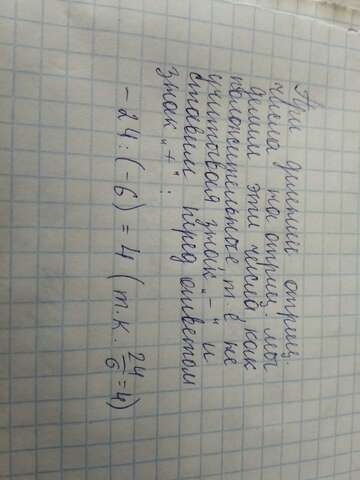 При делении отриц.
числа на отриц. мы
делим эти числа как
положительные т.е не
учитывая знак „-“ и
ставим перед ответом
знак „+“:
-24:(-6)=4 (т.к. 24/6=4)